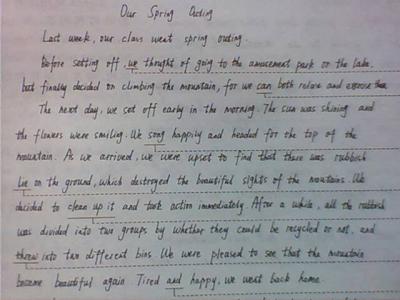 Our Spring Outing
Last week, our class went spring outing.
Before setting off, we thought of going to the amusement park or the lake,
but finally decided on climbing the mountain, for we can both relax and exercise there
The next day, we set off early in the morning. The sun was shining and
the flowers were smiling. We song happily and headed for the top of the
mountain. As we arrived, we were upset to find that there was rubbish
lie on the ground, which destroyed the beautiful sights of the mountains. We
decided to clean up it and took action immediately. After a while, all the rubbish
was divided into two groups by whether they could be recycled or not, and
threw into two different bins. We were pleased to see that the mountain
became beautiful again Tired and happy, we went back home.